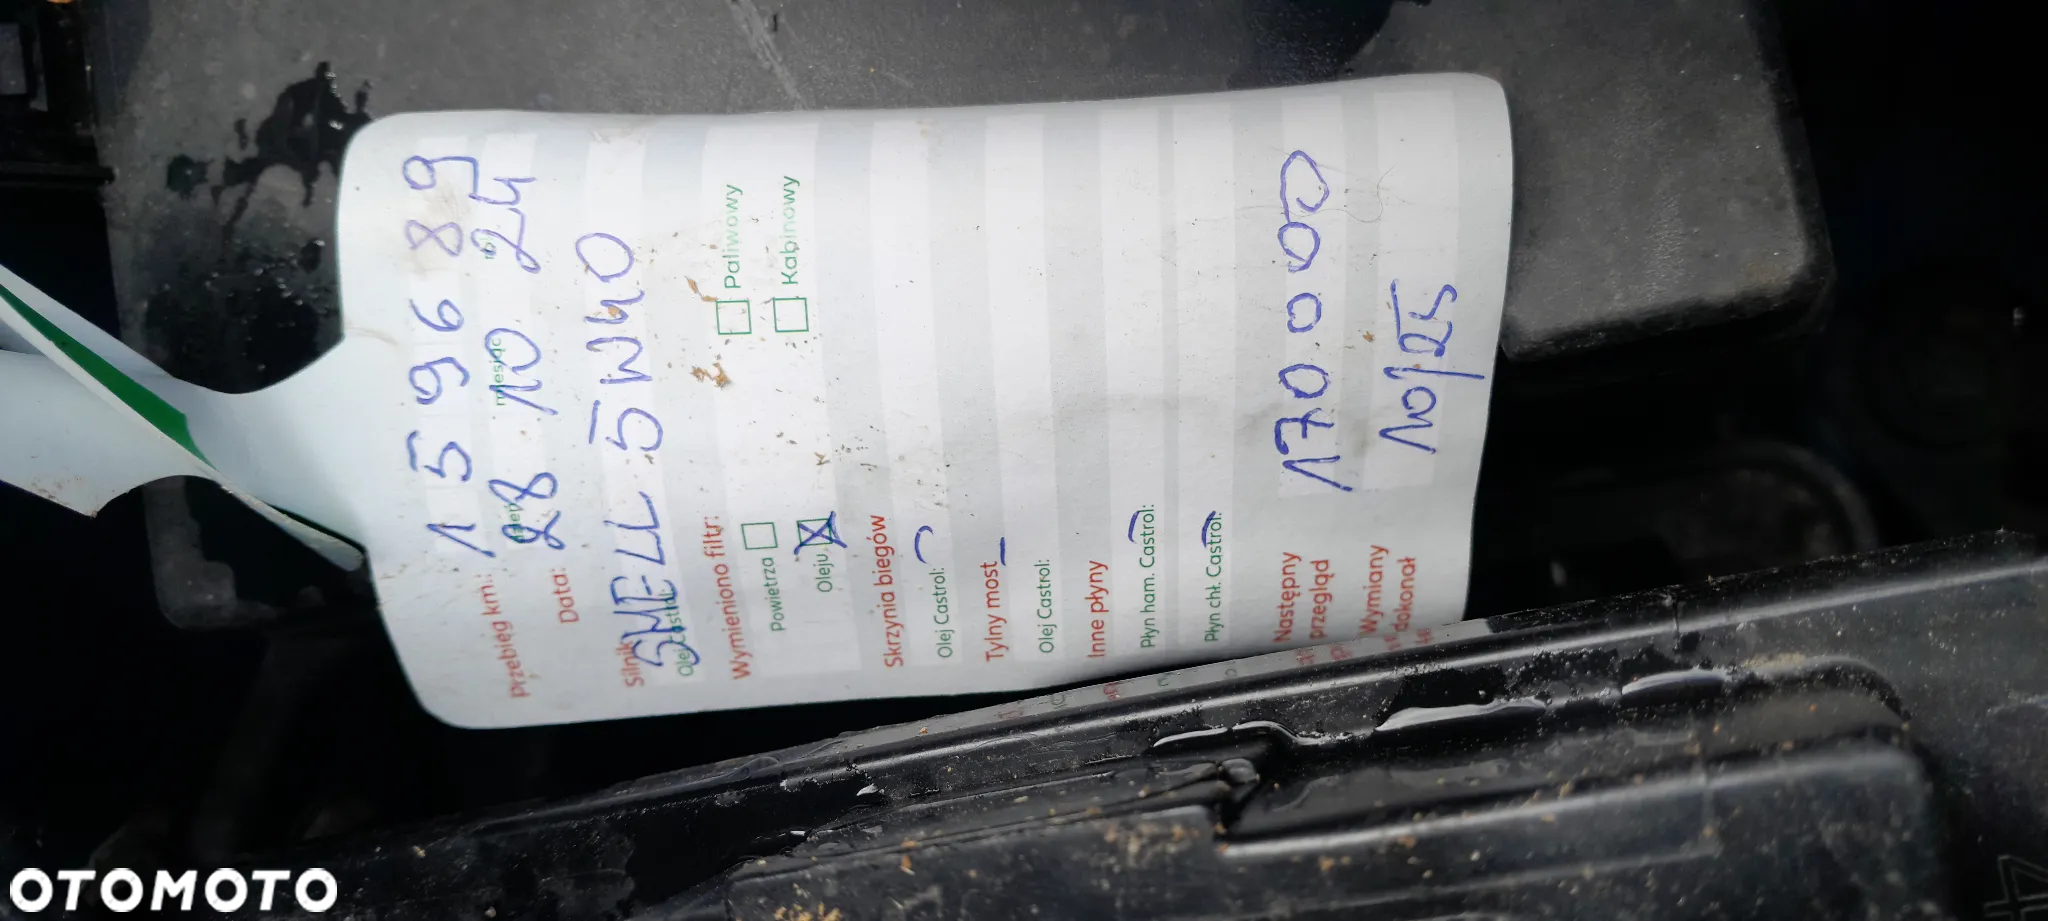 Przebieg km.: 159689
dzień miesiąc
Data: 28 10 24
Silnik
Olej Castrol: SHELL 5W40
Wymieniono filtr:
Powietrza Paliwowy
Oleju X Kabinowy
Skrzynia biegów
Olej Castrol: –
Tylny most –
Olej Castrol:
Inne płyny
Płyn ham. Castrol:
Płyn chł. Castrol:
Następny
przegląd 170 000
Wymiany
dokonał 10/25
OTOMOTO